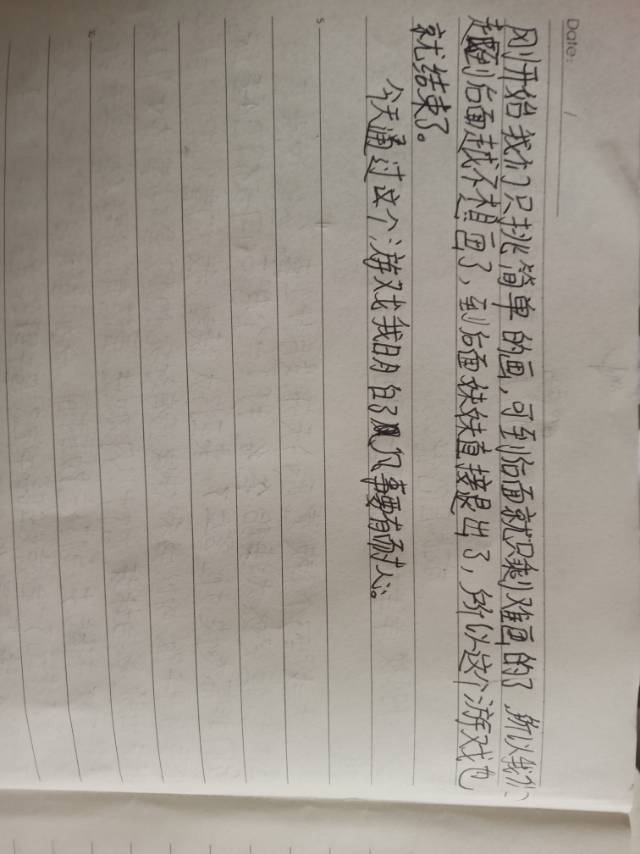 Date: /
刚开始我们只挑简单的画,可到后面就只剩难画的了,所以我们
越到后面越不想画了,到后面妹妹直接退出了,所以这个游戏也
就结束了。
今天通过这个游戏我明白了凡事要有耐心。
5